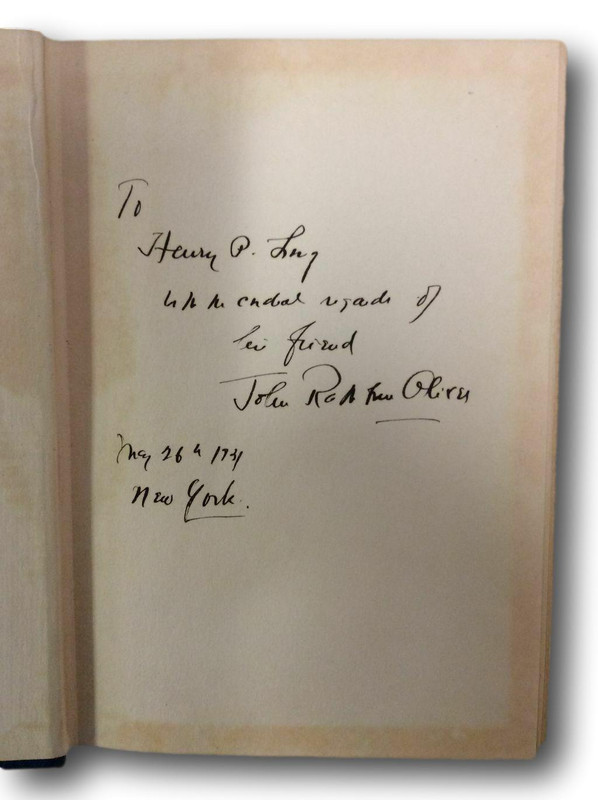 To
Henry P.
with the cordial regards of
his friend
John Rathbone Oliver
May 26th 1931
New York.